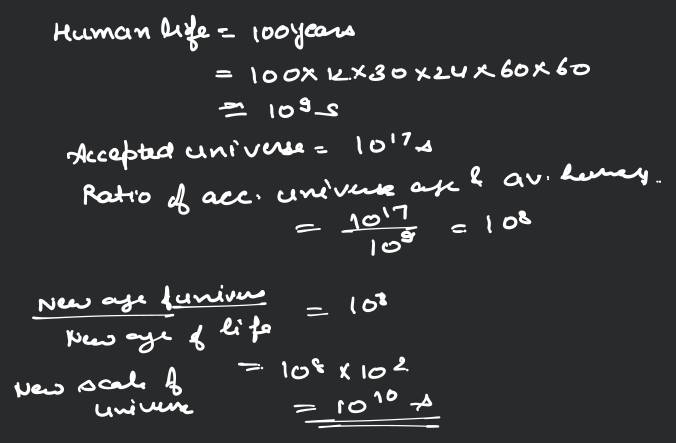 Human life = 100 years
= 100 × 12 × 30 × 24 × 60 × 60
= 10⁹ s
Accepted universe = 10¹⁷ s
Ratio of acc. universe age & av.
= 10¹⁷ / 10⁹ = 10⁸
New age of univers / New age of life = 10⁸
New scale of universe = 10⁸ × 10²
= 10¹⁰ s